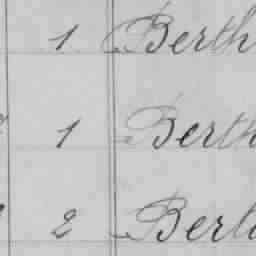 1 Berth
1 Berth
2 Bert